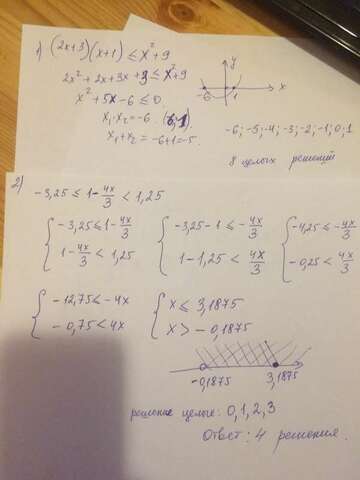 1) (2x+3)(x+1) ≤ x²+9
2x²+2x+3x+3 ≤ x²+9
x²+5x-6 ≤ 0
x₁·x₂=-6
x₁+x₂=-6+1=-5.
y
x
-6
1
-6;-5;-4;-3;-2;-1;0;1
8 целых решений
2)
-3,25 ≤ 1-4x/3 < 1,25
{ -3,25 ≤ 1-4x/3
1-4x/3 < 1,25
{ -3,25-1 ≤ -4x/3
1-1,25 < 4x/3
{ -4,25 ≤ -4x/3
-0,25 < 4x/3
{ -12,75 ≤ -4x
-0,75 < 4x
{ x ≤ 3,1875
x > -0,1875
-0,1875 3,1875
решение целые: 0,1,2,3
Ответ: 4 решения.